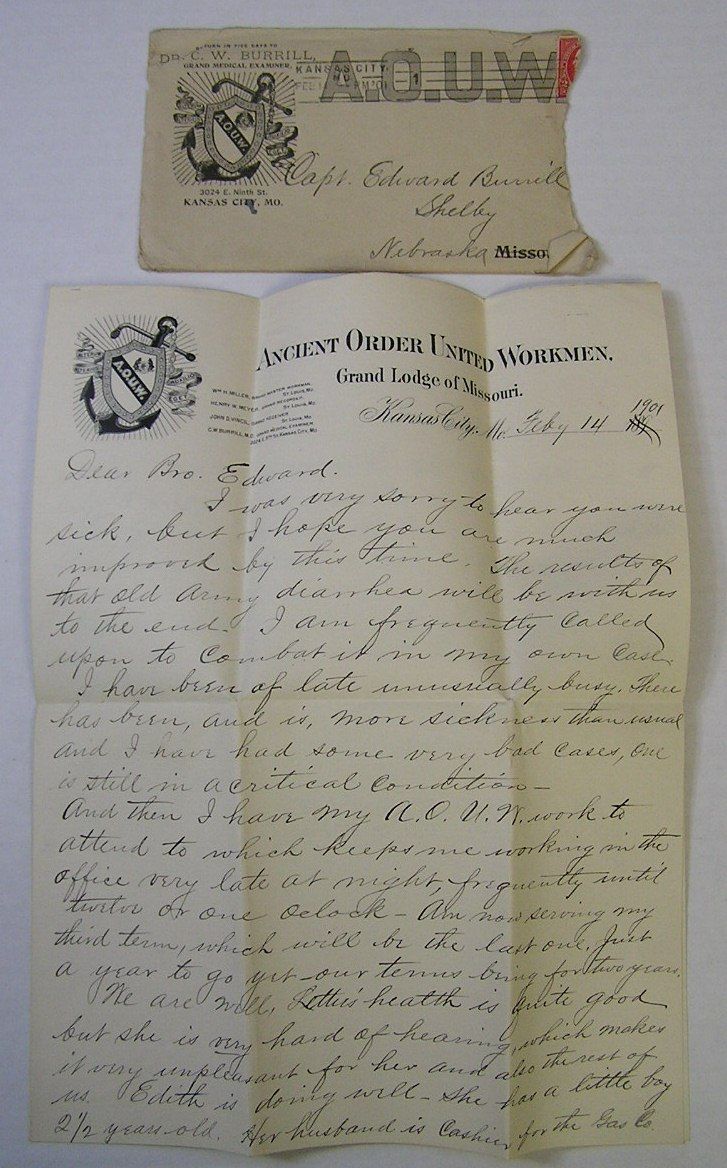 RETURN IN FIVE DAYS TO
DR. C. W. BURRILL,
GRAND MEDICAL EXAMINER,
KANSAS CITY
FEB
1
A.O.U.W.
A.O.U.W.
3024 E. Ninth St.
KANSAS CITY, MO.
Capt. Edward Burrill
Shelby
Nebraska Misso
A.O.U.W.
ANCIENT ORDER UNITED WORKMEN.
Grand Lodge of Missouri.
WM H. MILLER, GRAND MASTER WORKMAN,
ST. LOUIS, MO.
HENRY W. MEYER, GRAND RECORDER,
ST. LOUIS, MO.
JOHN D. VINCIL, GRAND RECEIVER
ST. LOUIS, MO.
C.W. BURRILL, M.D. GRAND MEDICAL EXAMINER
3024 E. 9TH ST. KANSAS CITY, MO.
Kansas City, Mo. Feby 14 1901
Dear Bro. Edward.
I was very sorry to hear you were
sick, but I hope you are much
improved by this time. The results of
that old Army diarrhea will be with us
to the end. I am frequently called
upon to combat it in my own case.
I have been of late unusually busy. There
has been, and is, more sickness than usual
and I have had some very bad cases, one
is still in a critical condition -
And then I have my A.O.U.W. work to
attend to which keeps me working in the
office very late at night, frequently until
twelve or one oclock - Am now serving my
third term, which will be the last one. Just
a year to go yet - our terms being for two years.
We are well, Lettie's health is quite good
but she is very hard of hearing, which makes
it very unpleasant for her and also the rest of
us. Edith is doing well - she has a little boy
2 1/2 years old. Her husband is Cashier for the Gas Co.